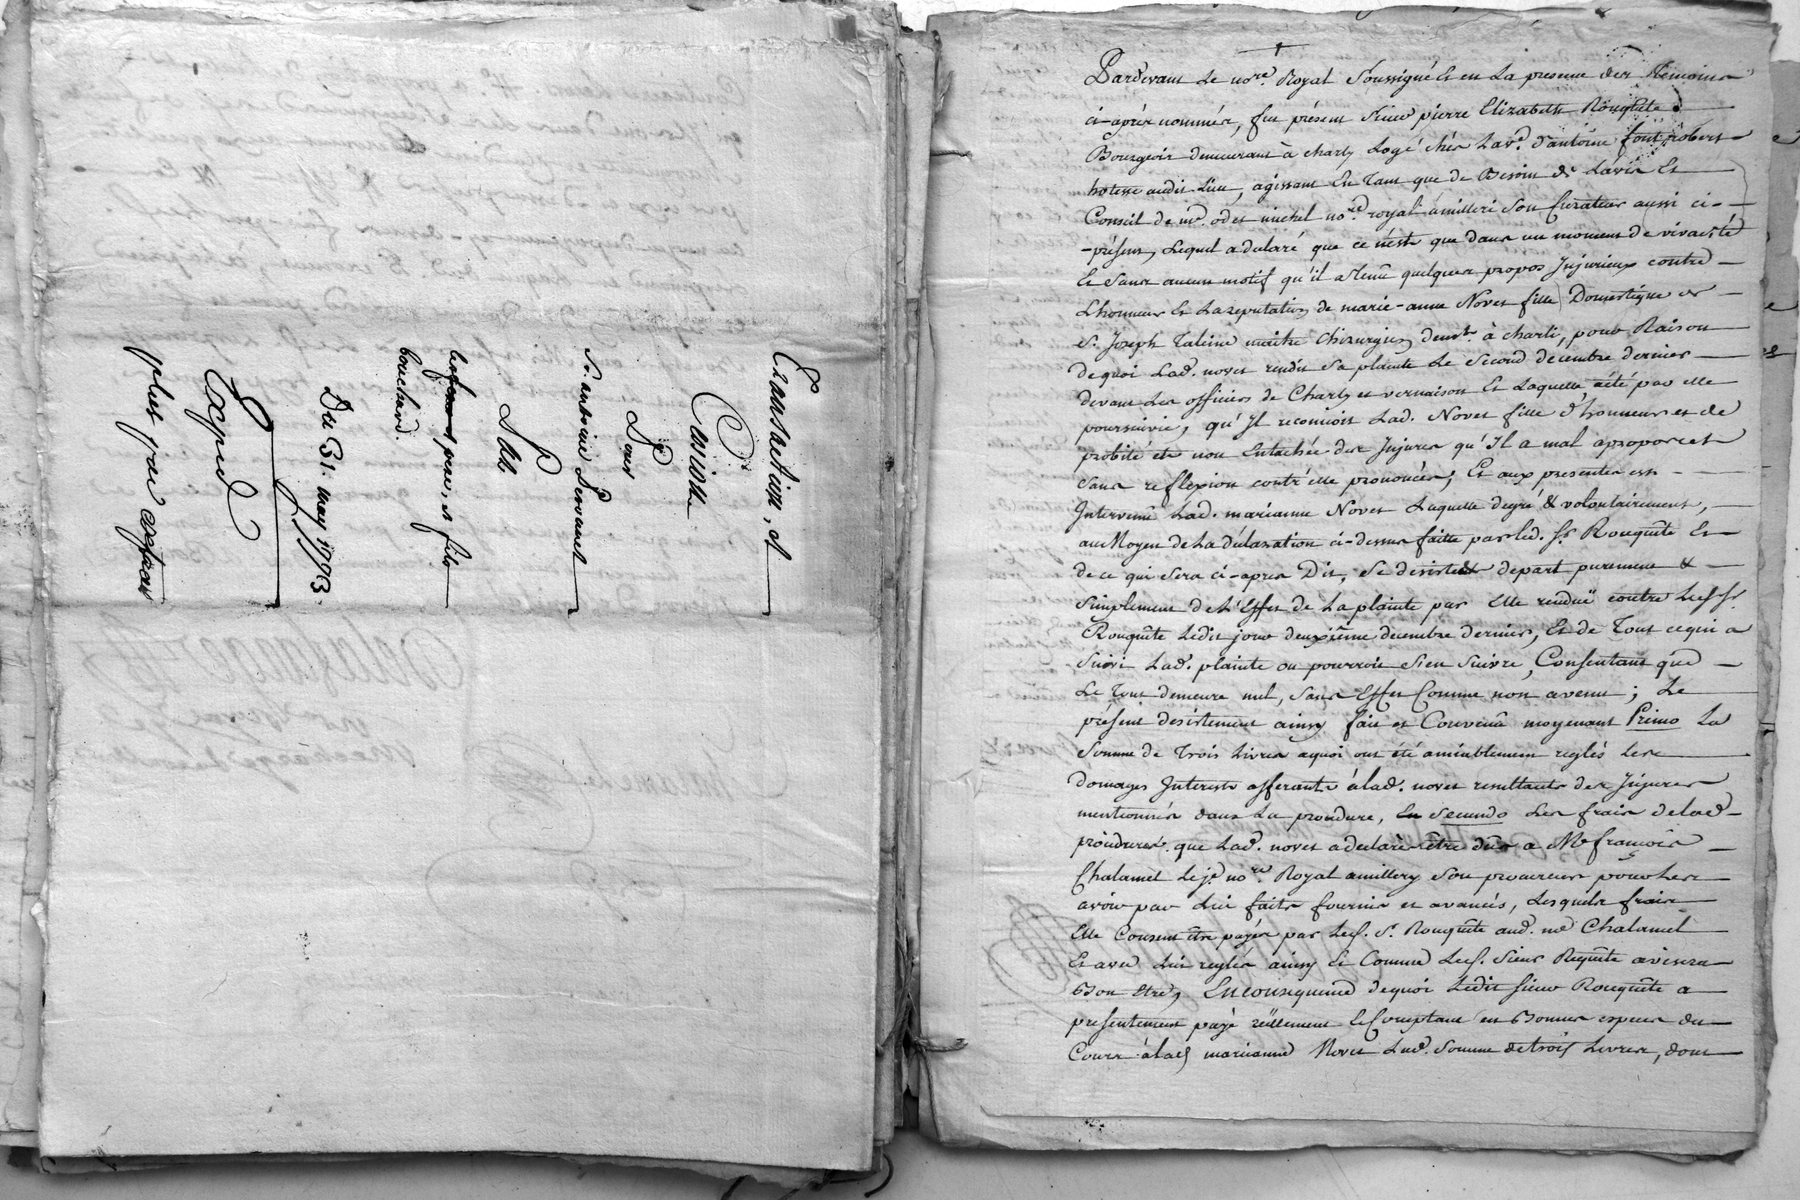 Transaction, et
Cession
Pour
Sr. antoine Servanel
Les
pere, et fils
bouchard.
Du 31. may 1773.
Expéd
plus fait
Pardevant Le nore. Royal Soussigné Et en La presence des Temoins
ci-après nommés, fut présent Sieur pierre Elizabeth Rouquête
Bourgeois demeurant à charly Logé chés La ve. d'antoine font robert
hotesse audit Lieu, agissant En Tant que de Besoin de L'avis Et
Conseil de me. odet michel nore. royal amilleri Son Curateur aussi ci-
-présent, Lequel a declaré que ce n'este que dans un moment de vivacité
Et Sans aucun motif qu'il a Tenu quelques propos Injurieux contre
L'honneur Et La reputation de marie-anne Novet fille Domestique de
Sr. Joseph Taleine maitre Chirurgien demt. à charli, pour Raison
de quoi Lad. novet rendit Sa plainte Le Second decembre dernier
devant Les officiers de Charly et vernaison Et Laquelle a été par elle
poursuivie, qu'Il reconnoit Lad. Novet fille d'honneur et de
probité et non Entachée des Injures qu'Il a mal apropos et
Sans reflexion contr'elle prononcées; Et aux presentes est
Intervenüe Lad. marianne Novet Laquelle de gré & volontairement,
au Moyen de La déclaration ci-dessus faitte par led. Sr. Rouquête Et
de ce qui Sera ci-apres Dit, Se desiste & depart purement &
Simplement de L'Effet de La plainte par Elle rendüe contre Led. Sr.
Rouquête Ledit jour deuxième decembre dernier, Et de Tout ce qui a
Suivi Lad. plainte ou pourroit S'en Suivre, Consentant que
Le Tout demeure nul, Sans Effet Comme non avenu; Le
présent desistement ainsy fait et Convenû moyenant Primo La
Somme de Trois Livres a quoi ont été amiablement reglés Les
Domages Interests afferants à lad. novet resultants des Injures
mentionnés dans La procedure, En Secundo Les frais de lad.
procedure que Lad. novet a declaré être dûs a Me françois
Chalamel Le je. nore. Royal amillery Son procureur pour Les
avoir par Lui faits fournis et avancés, Lesquels frais
Elle Consent être payés par Led. Sr. Rouquête aud. me Chalamel
Et avec Lui reglés ainsy Et Comme Led. Sieur Rouquête avisera
Bon Etre, En consequence de quoi Ledit Sieur Rouquête a
presentement payé réellement Et Comptant en Bonnes especes du
Cours à lad. marianne Novet Lad. Somme de trois Livres, dont